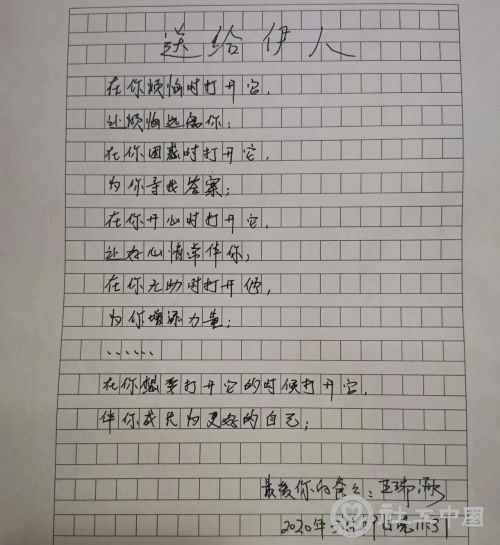 送给伊人
在你烦恼时打开它,
让烦恼远离你;
在你困惑时打开它,
为你寻找答案;
在你开心时打开它,
让好心情常伴你;
在你无助时打开他,
为你增添力量;
......
在你想要打开它的时候打开它,
伴你成长为更好的自己;
最爱你的爸爸:王瑞
2020年 日晚11:31
社工中國